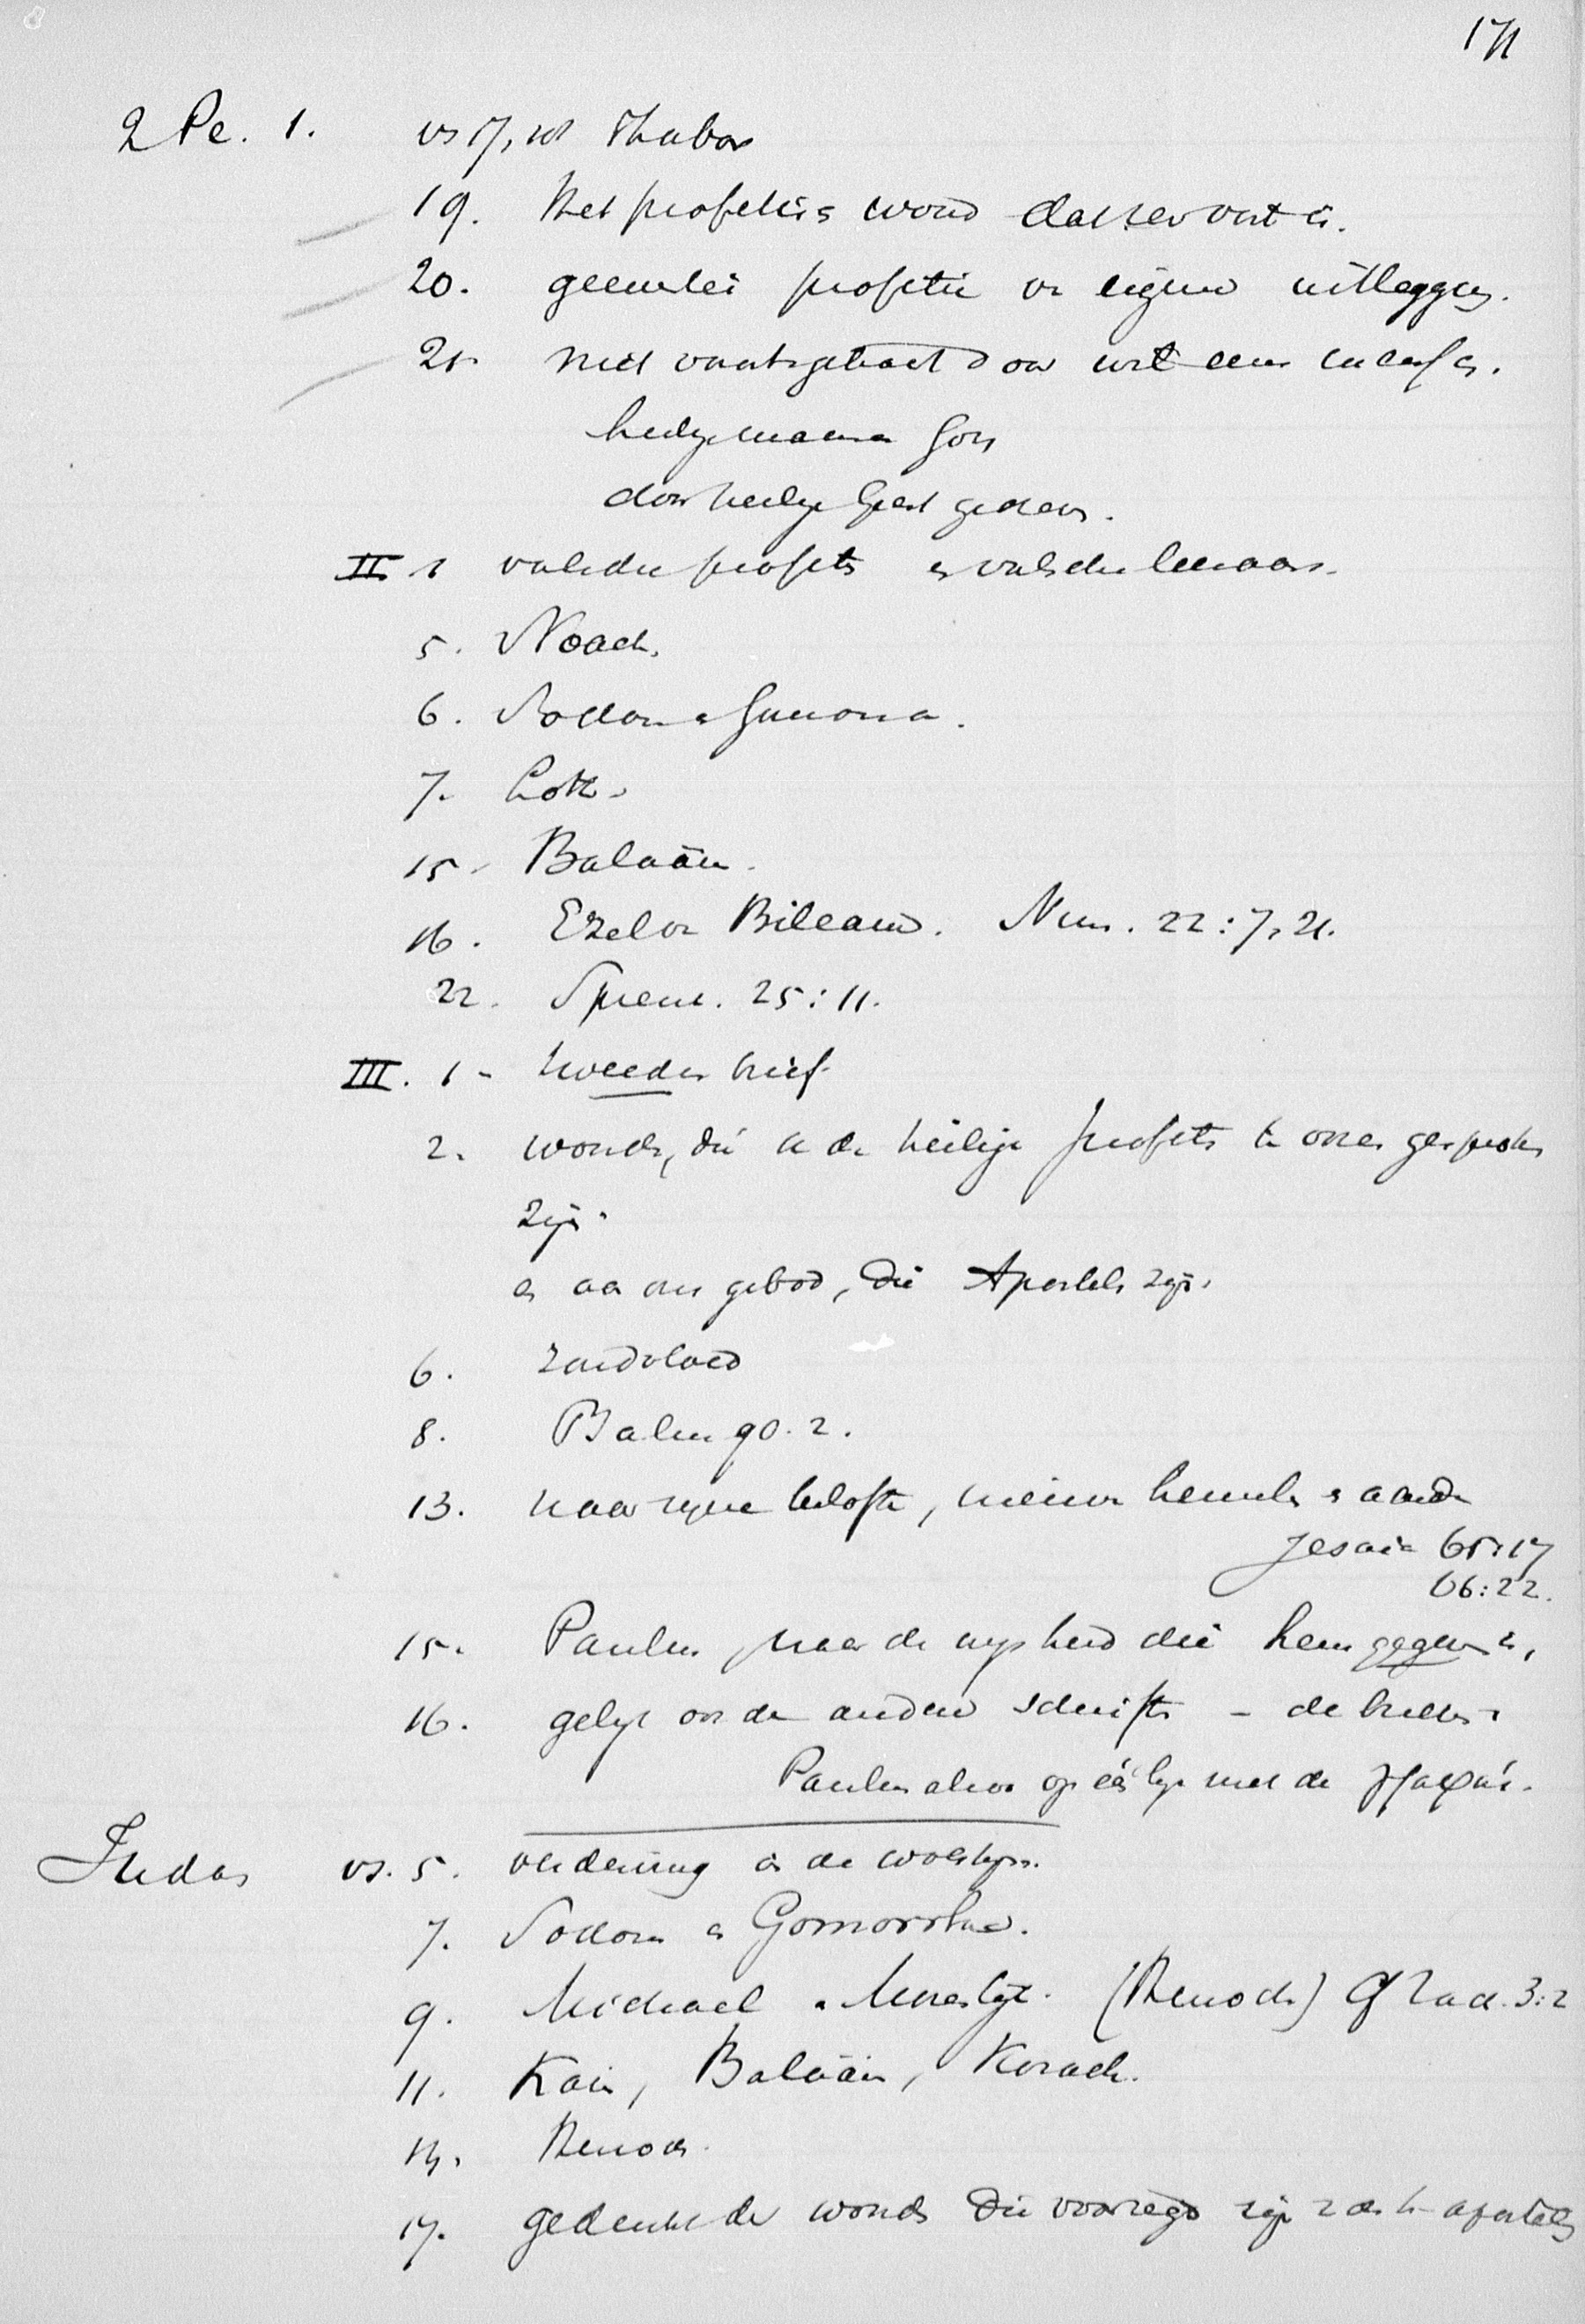 171
2 Pe. 1. vs 17, 18 Thabor
19. Het profetis woord dat zer vast is.
20. geenerlei profetie v. eigen uitlegging.
21. niet voortgebracht door wil eens mensch.
heilige mannen Gods
door heilige Geest gedreven.
II. 1 valsche profeten en valsche leeraars.
5. Noach.
6. Sodom en Gomorra.
7. Loth.
15. Balaäm.
16. Ezel v. Bileam. Num. 22:7, 21.
22. Spreuk. 25:11.
III. 1 - tweeden brief.
2. woorden, die v. de heilige profeten te voren gesproken
zijn.
en aan ons gebod, die Apostels zijn.
6. zondvloed
8. Psalm 90. 2.
13. naar zijne belofte, nieuwe hemelen en aarde
Jesaia 65:17
66:22.
15. Paulus, naar de wijsheid die hem gegeven is,
16. gelijk ook de andere schriften - de brieven v.
Paulus alzoo op één lijn met de γραφαί.
Judas vs. 5. verderving in de woestijn.
7. Sodom en Gomorrha.
9. Michael. Mozes lijk. (Henoch) Cf Zach. 3:2
11. Kain, Balaäm, Korach.
14. Henoch.
17. gedenkt der woorden die voorzegd zijn v. de apostelen